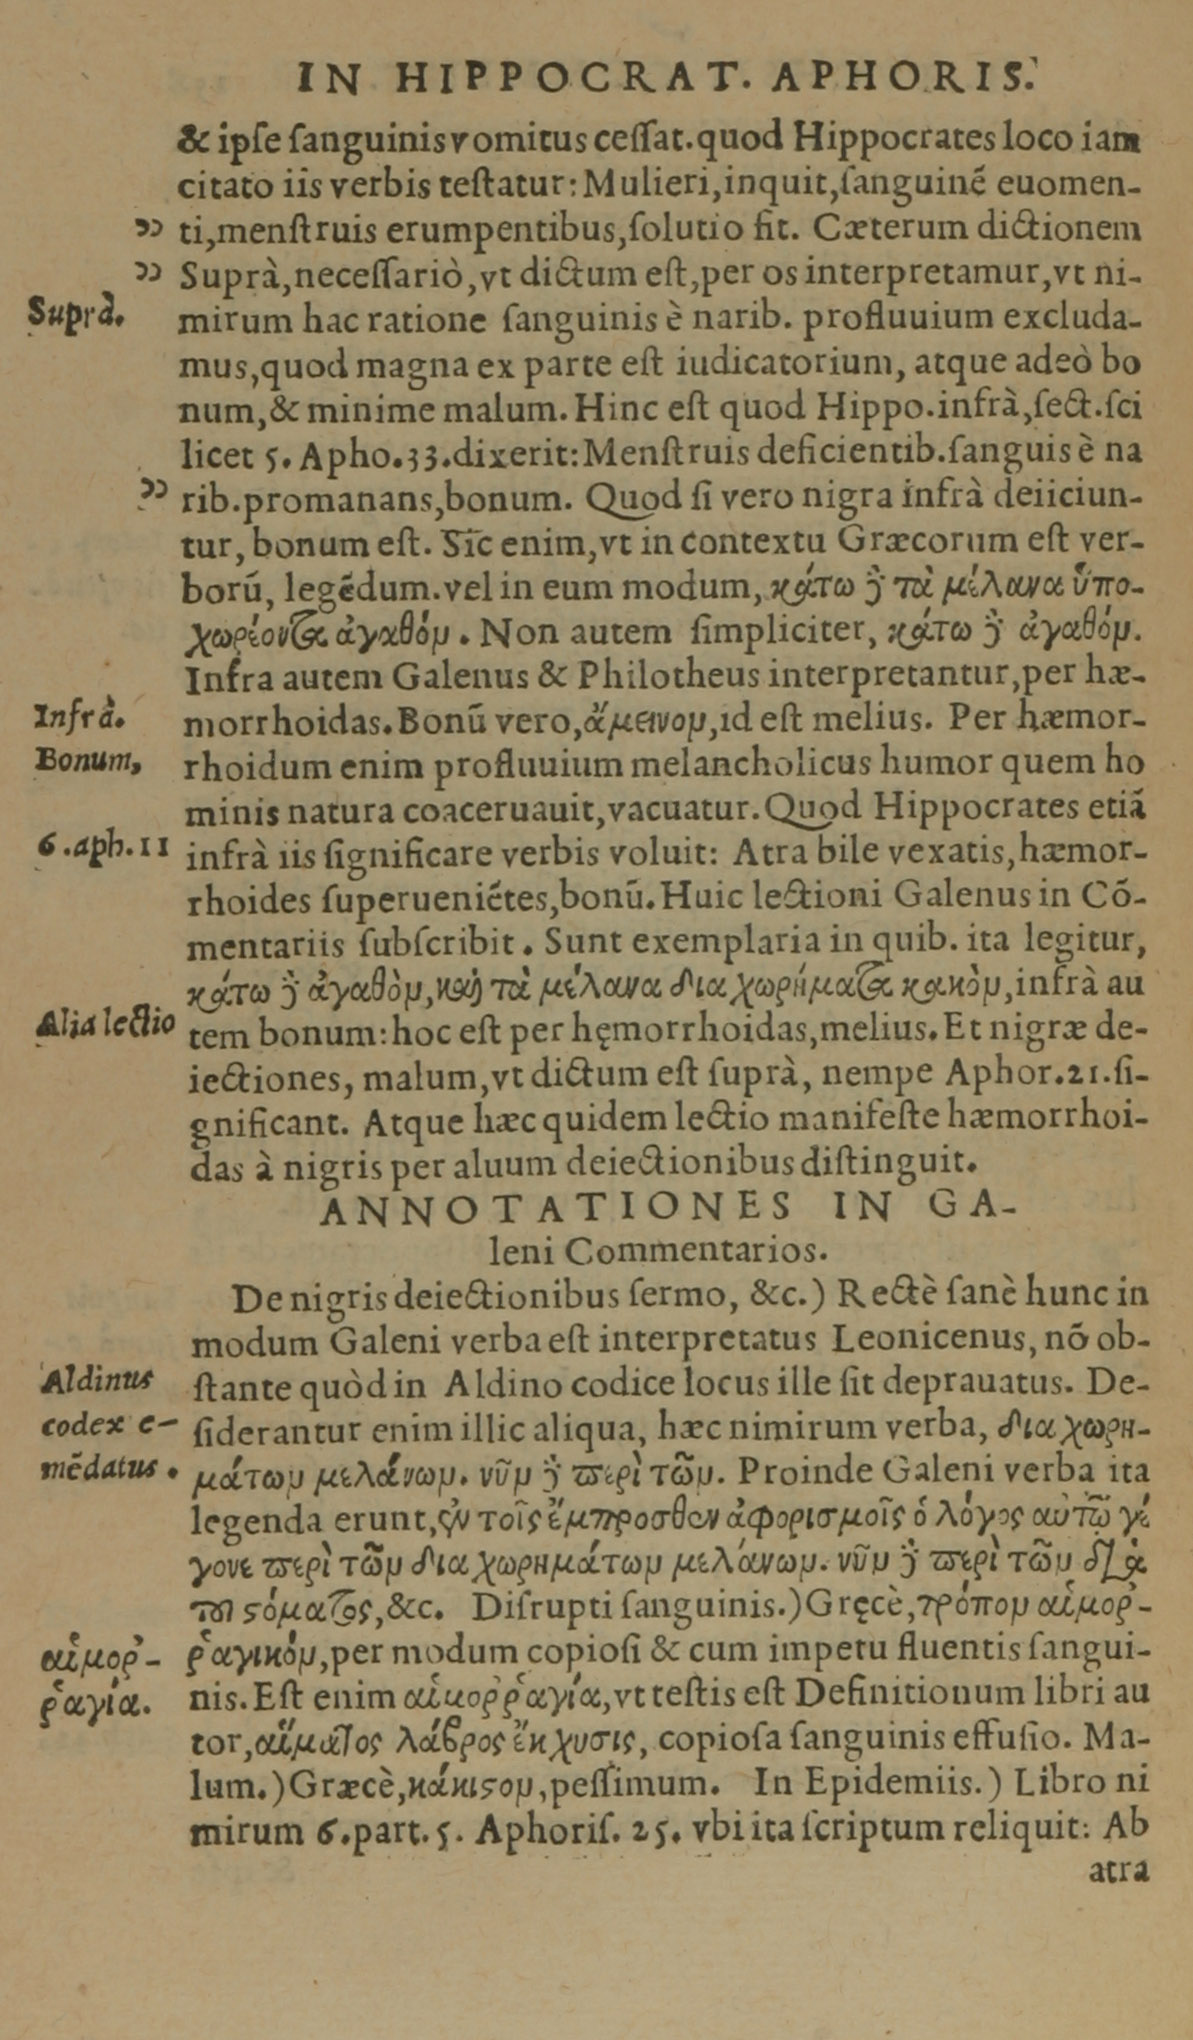 IN HIPPOCRAT. APHORIS.
& ipſe ſanguinis vomitus ceſſat. quod Hippocrates loco iam
citato iis verbis teſtatur: Mulieri, inquit, ſanguinẽ euomen-
ti, menſtruis erumpentibus, ſolutio fit. Cæterum dictionem
Suprà, neceſſariò, vt dictum eſt, per os interpretamur, vt ni-
Suprà.
mirum hac ratione ſanguinis è narib. profluuium excluda-
mus, quod magna ex parte eſt iudicatorium, atque adeò bo
num, & minime malum. Hinc eſt quod Hippo. infrà, ſect. ſci
licet 5. Apho. 33. dixerit: Menſtruis deficientib. ſanguis è na
rib. promanans, bonum. Quod ſi vero nigra infrà deiiciun-
tur, bonum eſt. Sic enim, vt in contextu Græcorum eſt ver-
borũ, legẽdum. vel in eum modum, κάτω δὲ τὰ μέλανα ὑπο-
χωρέοντα ἀγαθόν. Non autem ſimpliciter, κάτω δὲ ἀγαθόν.
Infra autem Galenus & Philotheus interpretantur, per hæ-
Infrà.
morrhoidas. Bonũ vero, ἄμεινον, id eſt melius. Per hæmor-
Bonum,
rhoidum enim profluuium melancholicus humor quem ho
minis natura coaceruauit, vacuatur. Quod Hippocrates etiã
6. aph. 11
infrà iis ſignificare verbis voluit: Atra bile vexatis, hæmor-
rhoides ſuperueniẽtes, bonũ. Huic lectioni Galenus in Cõ-
mentariis ſubſcribit. Sunt exemplaria in quib. ita legitur,
κάτω δὲ ἀγαθὸν, καὶ τὰ μέλανα διαχωρήματα κακὸν, infrà au
Alia lectio
tem bonum: hoc eſt per hęmorrhoidas, melius. Et nigræ de-
iectiones, malum, vt dictum eſt ſuprà, nempe Aphor. 21. ſi-
gnificant. Atque hæc quidem lectio manifeſte hæmorrhoi-
das à nigris per aluum deiectionibus diſtinguit.
ANNOTATIONES IN GA-
leni Commentarios.
De nigris deiectionibus ſermo, &c.) Rectè ſanè hunc in
modum Galeni verba eſt interpretatus Leonicenus, nõ ob-
Aldinus
ſtante quòd in Aldino codice locus ille ſit deprauatus. De-
codex e-
ſiderantur enim illic aliqua, hæc nimirum verba, διαχωρη-
mẽdatus.
μάτων μελάνων. νῦν δὲ περὶ τῶν. Proinde Galeni verba ita
legenda erunt, ἐν τοῖς ἔμπροσθεν ἀφορισμοῖς ὁ λόγος αὐτῷ γέ
γονε περὶ τῶν διαχωρημάτων μελάνων. νῦν δὲ περὶ τῶν διὰ
τοῦ στόματος, &c. Diſrupti ſanguinis.) Gręcè, τρόπον αἱμοῤ-
αἱμοῤ-
ῥαγικόν, per modum copioſi & cum impetu fluentis ſangui-
ῥαγία.
nis. Eſt enim αἱμοῤῥαγία, vt teſtis eſt Definitionum libri au
tor, αἵματος λάβρος ἔκχυσις, copioſa ſanguinis effuſio. Ma-
lum.) Græcè, κάκιστον, peſſimum. In Epidemiis.) Libro ni
mirum 6. part. 5. Aphoriſ. 25. vbi ita ſcriptum reliquit: Ab
atra